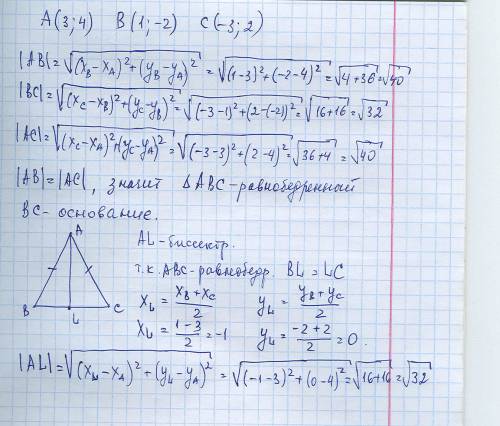 A(3; 4) B(1; -2) C(-3; 2)
|AB| = √(x_B - x_A)² + (y_B - y_A)² = √(1-3)² + (-2-4)² = √4+36 = √40
|BC| = √(x_C - x_B)² + (y_C - y_B)² = √(-3-1)² + (2-(-2))² = √16+16 = √32
|AC| = √(x_C - x_A)² + (y_C - y_A)² = √(-3-3)² + (2-4)² = √36+4 = √40
|AB| = |AC|, значит △ABC - равнобедренный
BC - основание.
A
B
C
L
AL - биссектр.
т.к. ABC - равнобедр. BL = LC
x_L = x_B + x_C / 2 y_L = y_B + y_C / 2
x_L = 1 - 3 / 2 = -1 y_L = -2 + 2 / 2 = 0.
|AL| = √(x_L - x_A)² + (y_L - y_A)² = √(-1-3)² + (0-4)² = √16+16 = √32